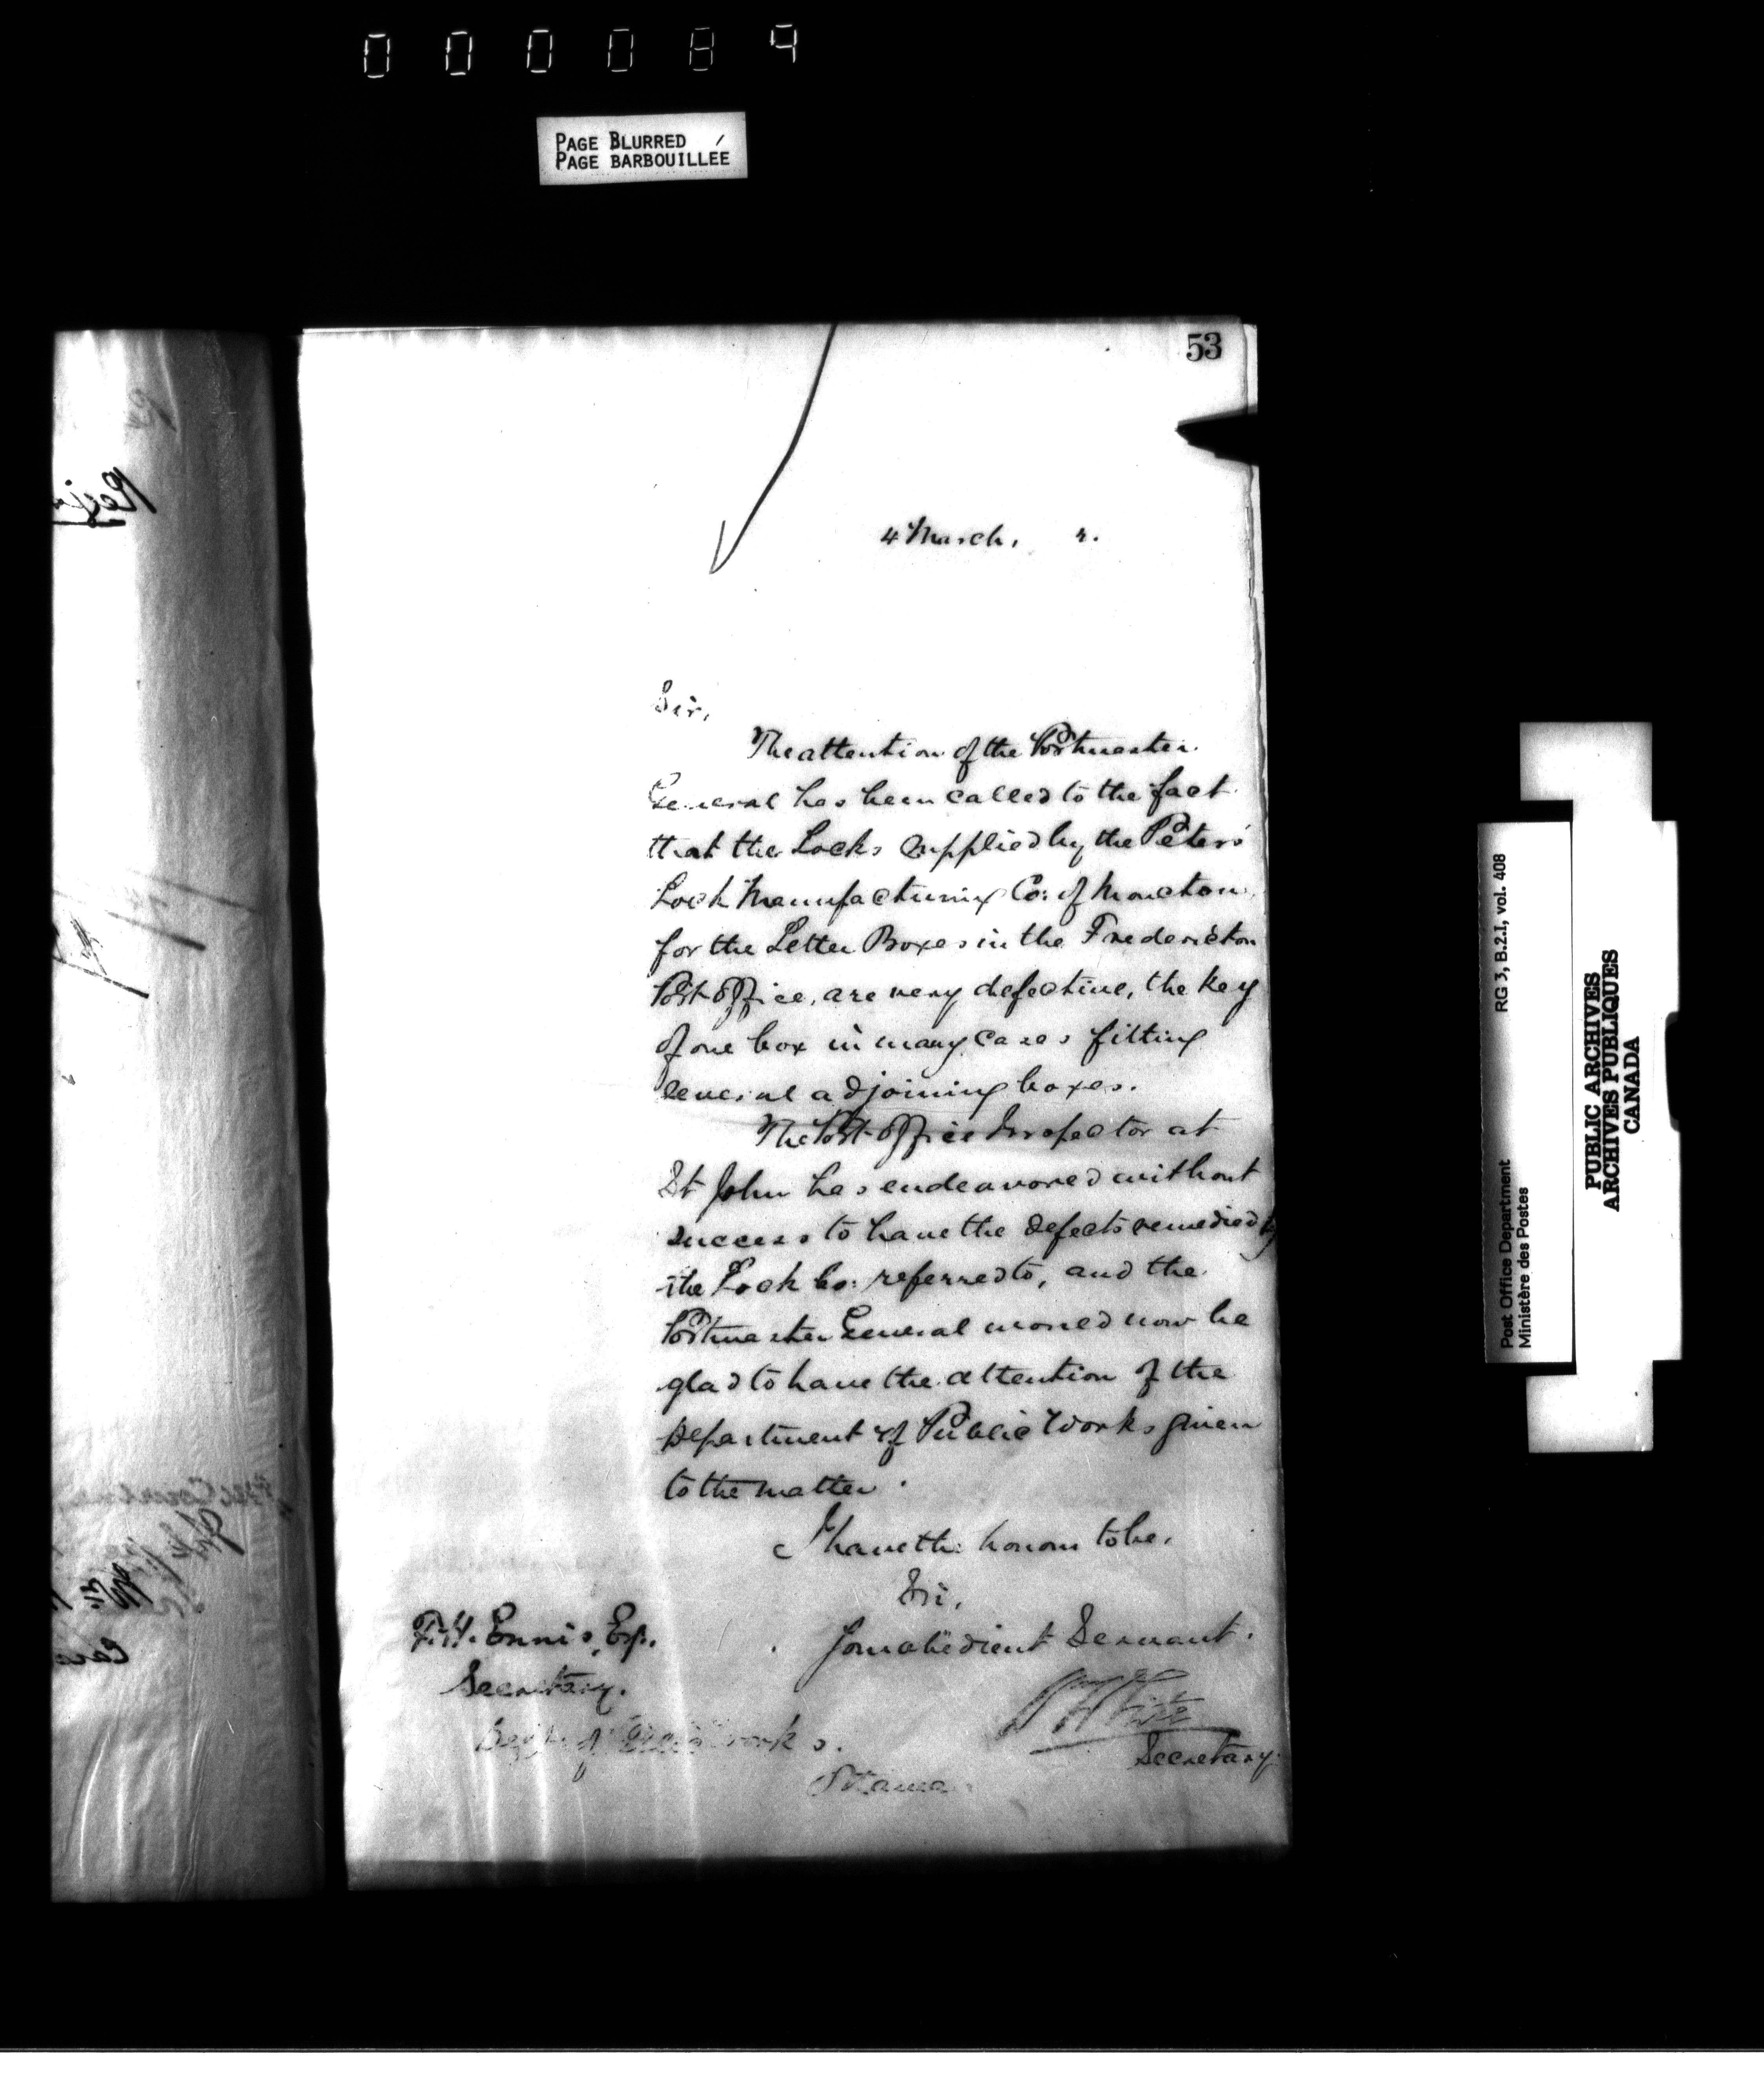 000089
PAGE BLURRED
PAGE BARBOUILLÉE
53
4 March, 2.
Sir,
The attention of the Postmaster
General has been called to the fact
that the Locks supplied by the Peters'
Lock Manufacturing Co: of Moncton
for the Letter Boxes in the Fredericton
Post Office, are very defective, the key
of one box in many cases fitting
several adjoining boxes.
The Post Office Inspector at
St John has endeavored without
success to have the defects remedied by
the Lock Co: referred to, and the
Postmaster General would now be
glad to have the attention of the
Department of Public Works given
to the matter.
I have the honour to be,
Sir,
Your obedient Servant.
Secretary.
F. H. Ennis, Esq.
Secretary.
Dept. of Public Works.
Ottawa
Post Office Department RG 3, B.2.I, vol. 408
Ministère des Postes
PUBLIC ARCHIVES
ARCHIVES PUBLIQUES
CANADA